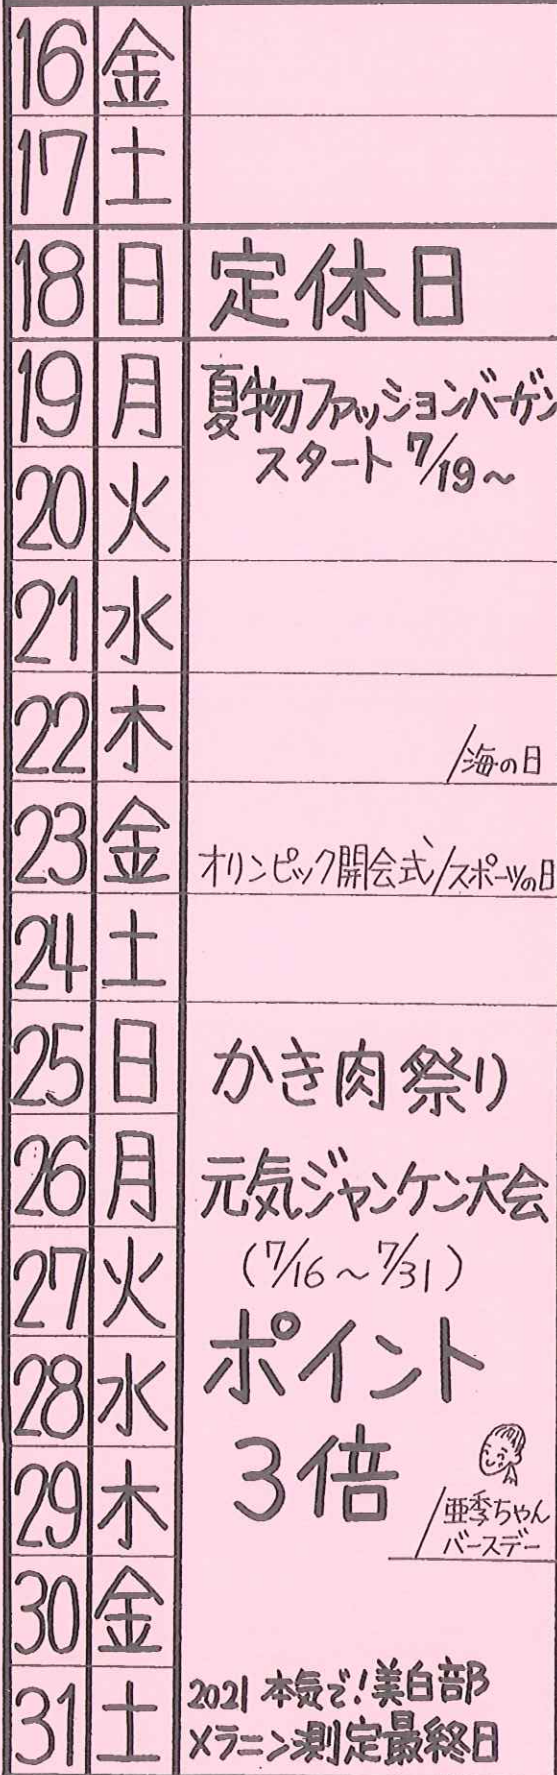 16 金
17 土
18 日 定休日
19 月 夏物ファッションバーゲン
スタート 7/19～
20 火
21 水
22 木 /海の日
23 金 オリンピック開会式/スポーツの日
24 土
25 日 かき肉祭り
26 月 元気ジャンケン大会
27 火 (7/16～7/31)
28 水 ポイント
29 木 3倍 /亜季ちゃん
バースデー
30 金
31 土 2021 本気で！美白部
メラニン測定最終日